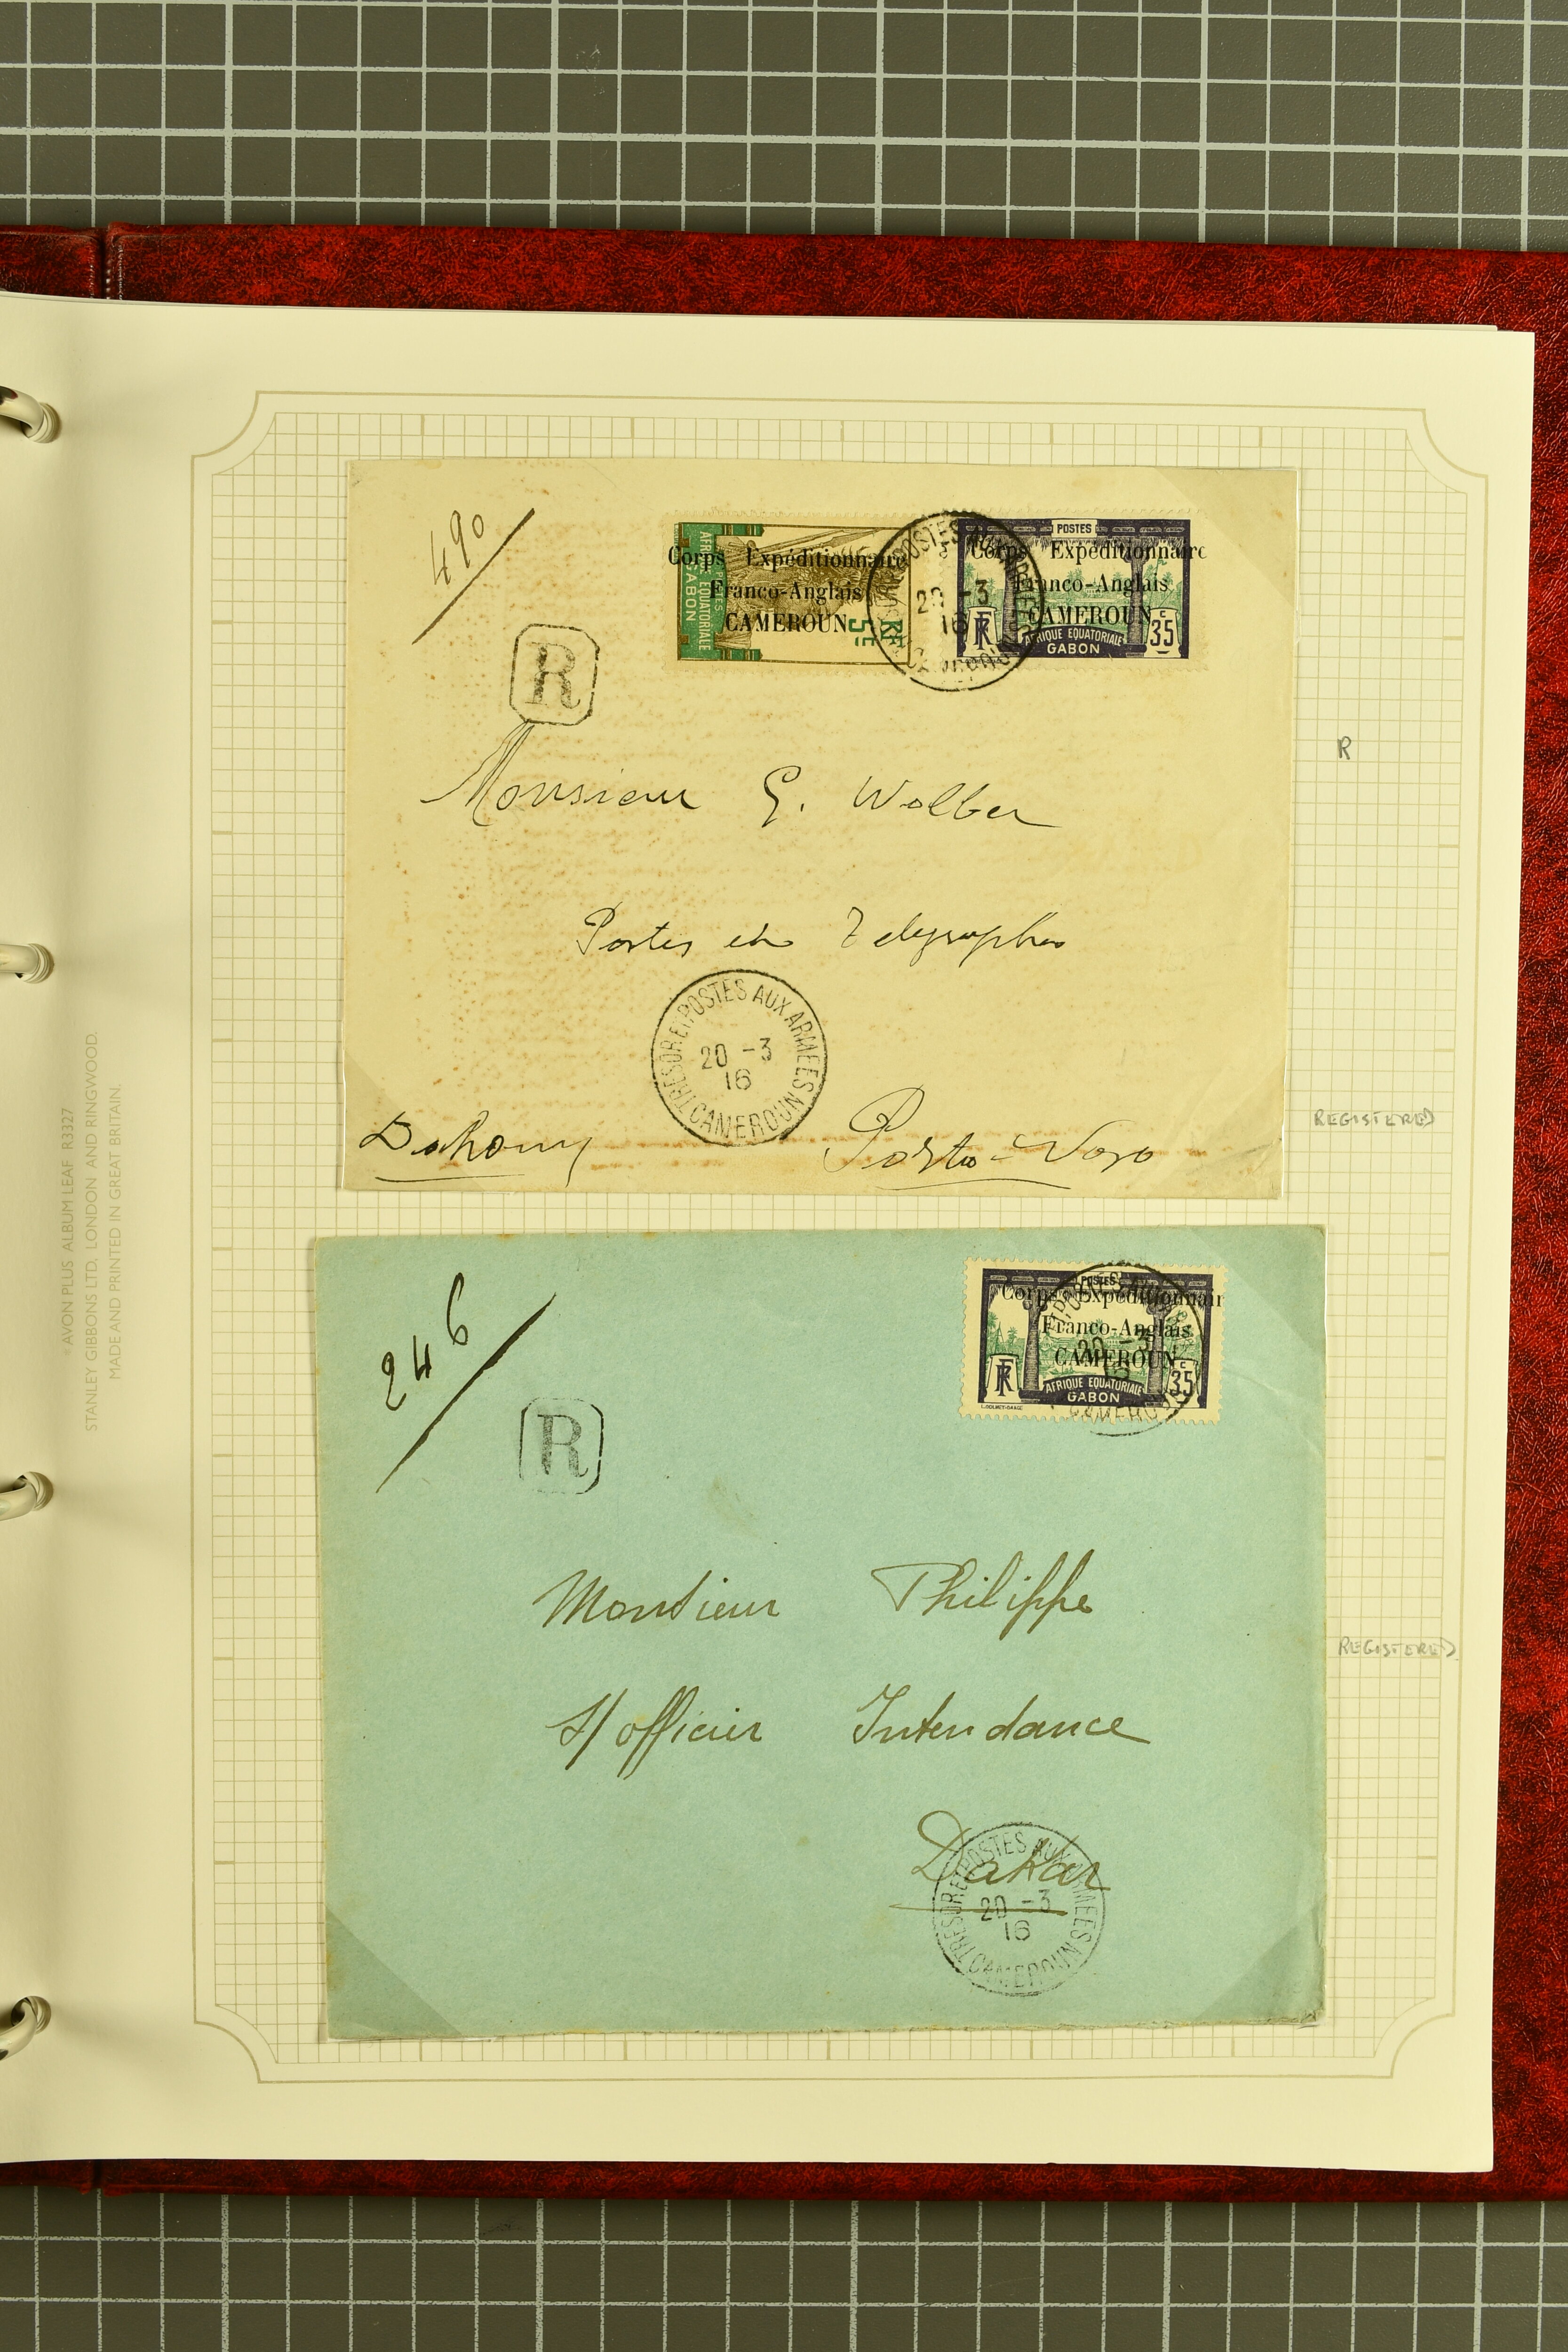 AVON PLUS ALBUM LEAF R3327
STANLEY GIBBONS LTD, LONDON AND RINGWOOD.
MADE AND PRINTED IN GREAT BRITAIN.
490
R
AFRIQUE EQUATORIALE
GABON
RF
5c
Corps Expéditionnaire
Franco-Anglais
CAMEROUN
POSTES
Corps Expéditionnaire
Franco-Anglais
CAMEROUN
RF
AFRIQUE EQUATORIALE
GABON
35 c
20 -3
16
Monsieur G. Wolber
Postes et Telegraphes
TRESOR ET POSTES AUX ARMEES
20 -3
16
CAMEROUN
Dahomey
Porto-Novo
R
REGISTERED
246
R
POSTES
Corps Expéditionnair
Franco-Anglais
CAMEROUN
RF
AFRIQUE EQUATORIALE
GABON
35 c
20 -3
Monsieur Philippe
S/officier Intendance
Dakar
TRESOR ET POSTES AUX ARMEES
20 -3
16
CAMEROUN
REGISTERED